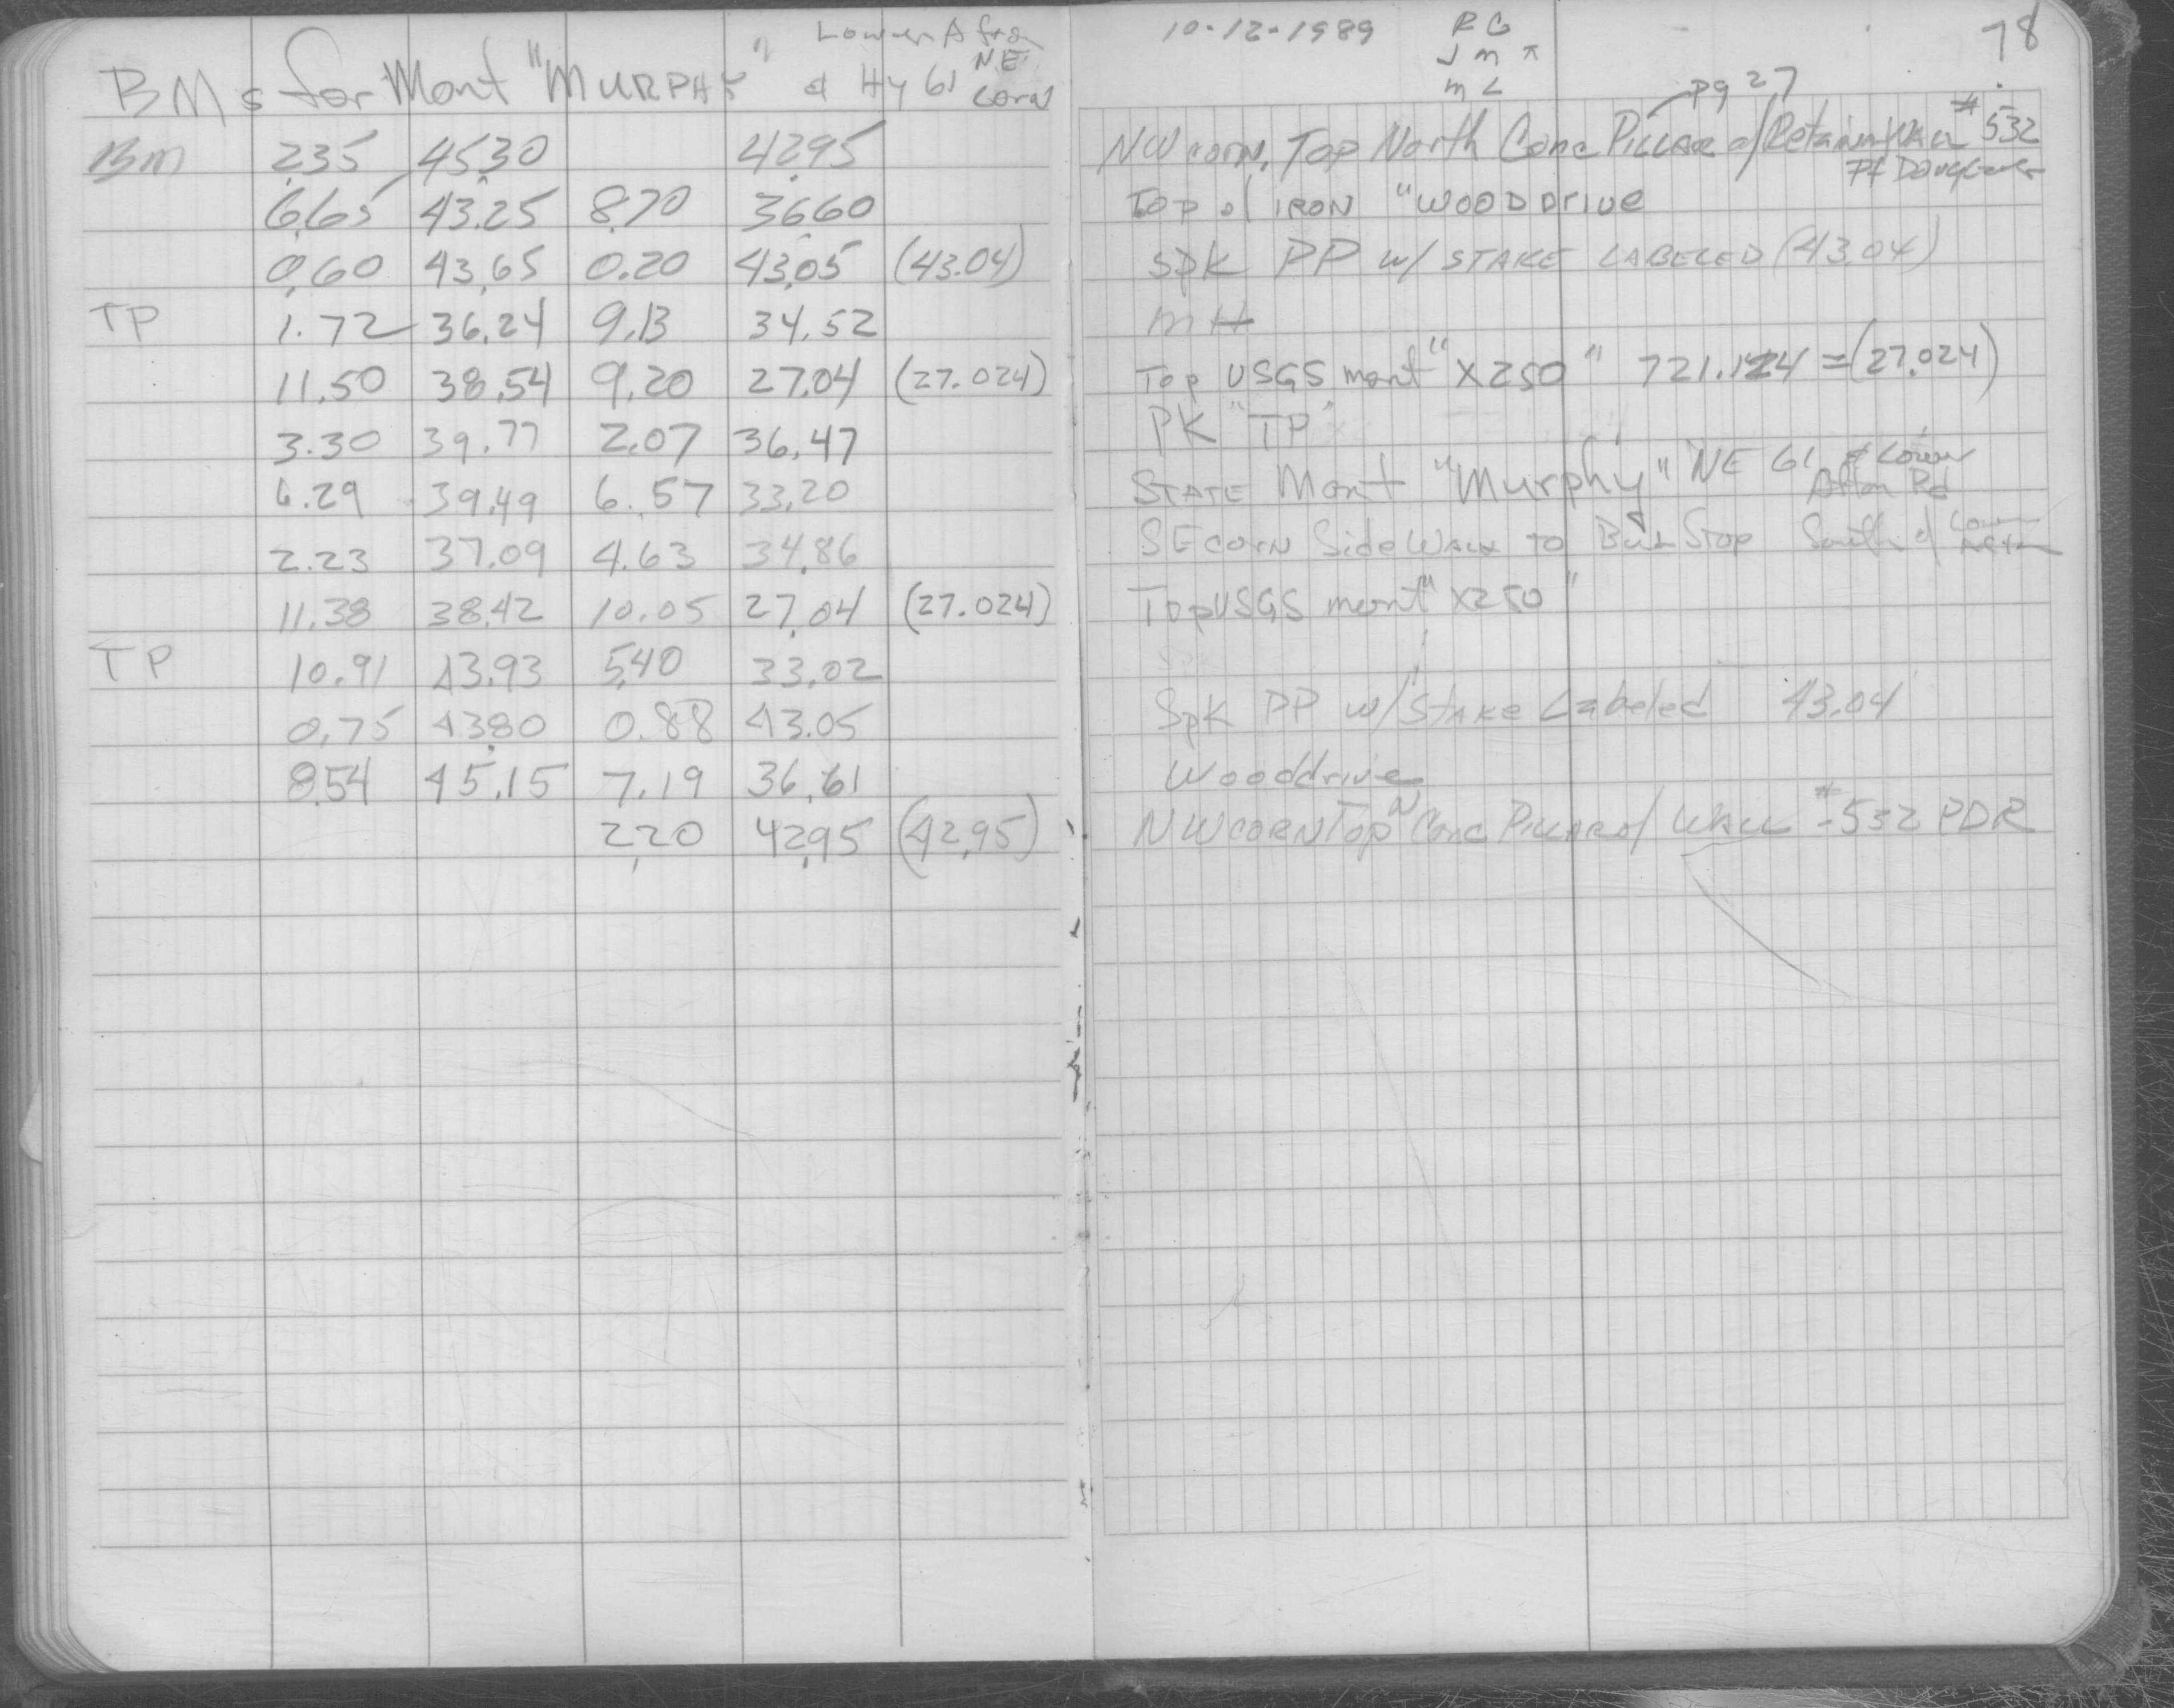 Lower Afton
BMs for Mont "MURPHY" & Hy 61 NE Corn
BM 2.35 45.30 42.95
6.65 43.25 8.70 36.60
0.60 43.65 0.20 43.05 (43.04)
TP 1.72 36.24 9.13 34.52
11.50 38.54 9.20 27.04 (27.024)
3.30 39.77 2.07 36.47
6.29 39.49 6.57 33.20
2.23 37.09 4.63 34.86
11.38 38.42 10.05 27.04 (27.024)
TP 10.91 43.93 5.40 33.02
0.75 43.80 0.88 43.05
8.54 45.15 7.19 36.61
2.20 42.95 (42.95)
10-12-1989 RG 78
JM π
ML pg 27
NW corn. Top North Conc Pillar of Retain Wall #532
Pt Douglas
Top of IRON "WOODDRIVE
SPK PP w/ STAKE LABELED (43.04)
MH
Top USGS mont "X250" 721.124 = (27.024)
PK "TP"
STATE Mont "Murphy" NE 61 & Lower
Afton Rd
SE corn SideWalk to Bus Stop South of Lower
Afton
Top USGS mont "X250"
Spk PP w/ Stake Labeled 43.04
Wooddrive
NW CORN Top N Conc Pillar of Wall #532 PDR